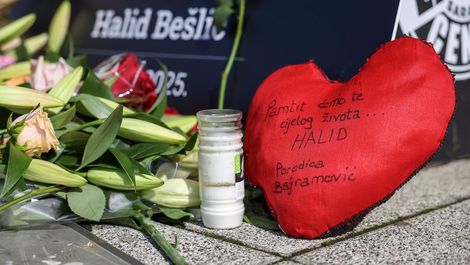 Halid Bešlić
2025.
Pamtit ćemo te
cijelog života....
HALID
Porodica
Bajramović